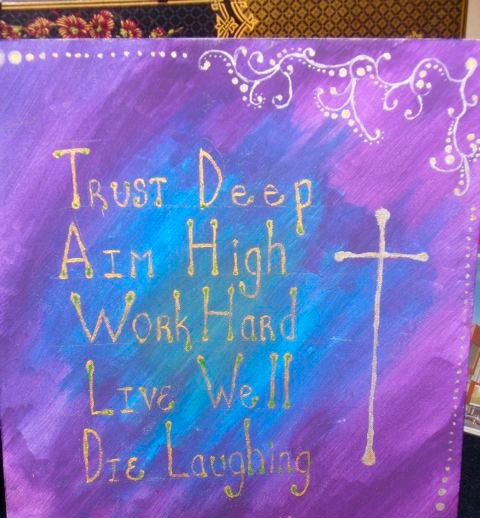 Trust Deep
Aim High
Work Hard
Live Well
Die Laughing